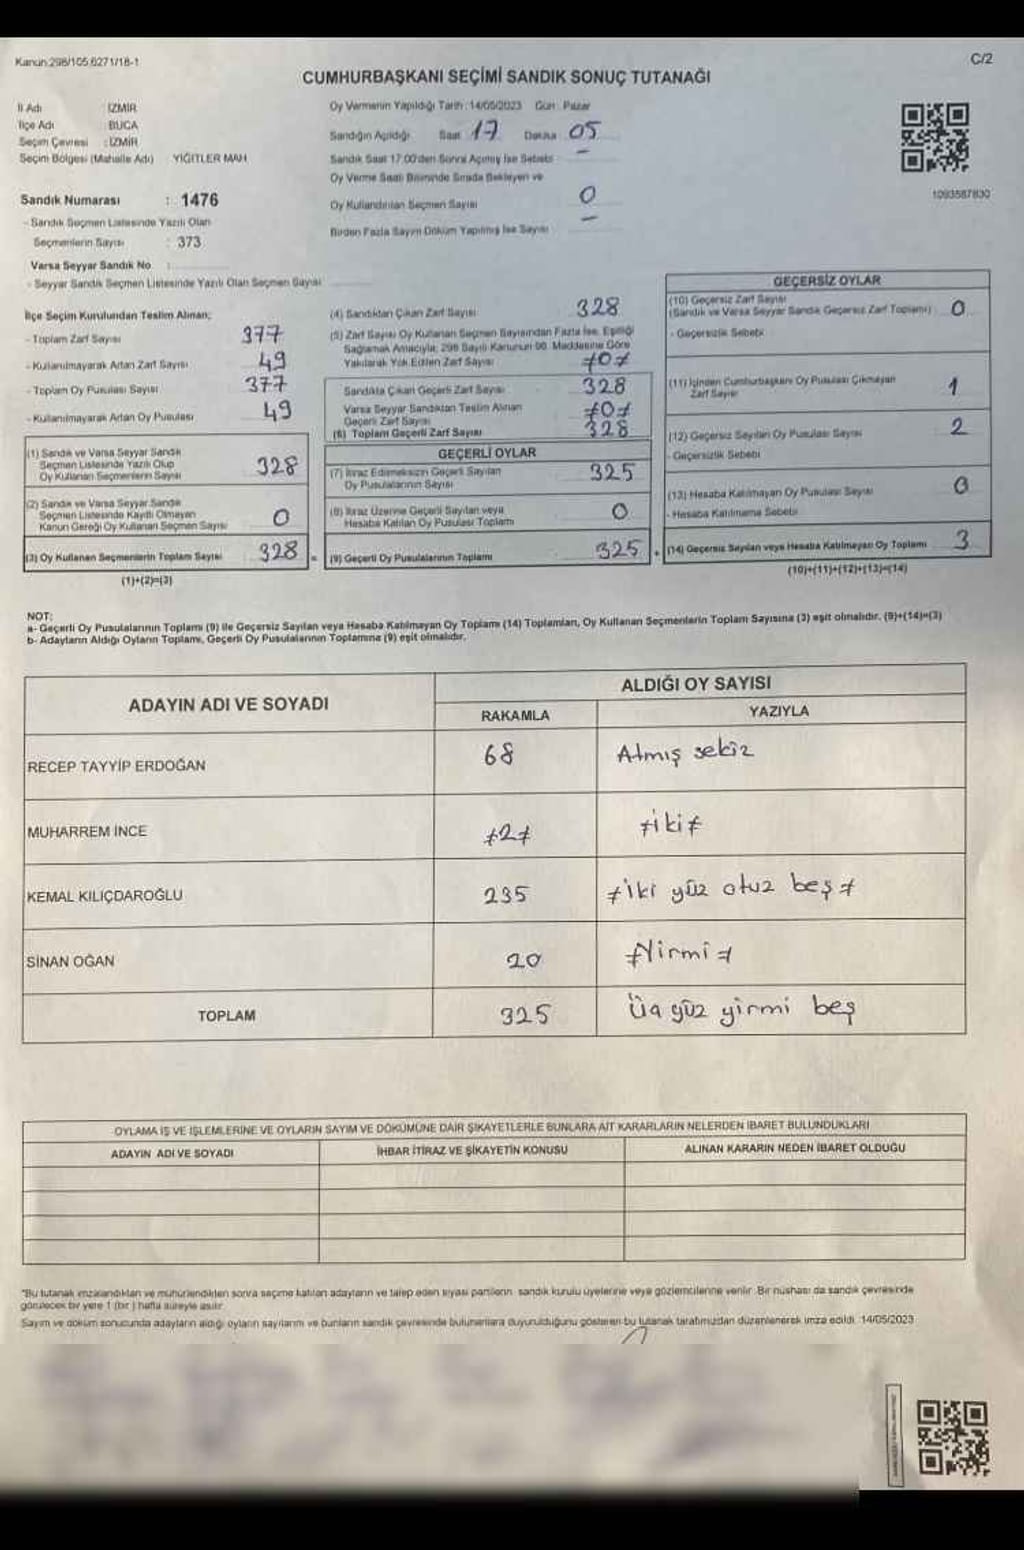 Kanun:298/105,6271/18-1
C/2
CUMHURBAŞKANI SEÇİMİ SANDIK SONUÇ TUTANAĞI
İl Adı : İZMİR
İlçe Adı : BUCA
Seçim Çevresi : İZMİR
Seçim Bölgesi (Mahalle Adı) YİĞİTLER MAH
Sandık Numarası : 1476
- Sandık Seçmen Listesinde Yazılı Olan
Seçmenlerin Sayısı : 373
Varsa Seyyar Sandık No :
- Seyyar Sandık Seçmen Listesinde Yazılı Olan Seçmen Sayısı
Oy Vermenin Yapıldığı Tarih : 14/05/2023 Gün : Pazar
Sandığın Açıldığı Saat 17 Dakika 05
Sandık Saat 17:00'den Sonra Açılmış İse Sebebi -
Oy Verme Saati Bitiminde Sırada Bekleyen ve
Oy Kullandırılan Seçmen Sayısı 0
Birden Fazla Sayım Döküm Yapılmış İse Sayısı -
1093587830
İlçe Seçim Kurulundan Teslim Alınan;
- Toplam Zarf Sayısı 377
- Kullanılmayarak Artan Zarf Sayısı 49
- Toplam Oy Pusulası Sayısı 377
- Kullanılmayarak Artan Oy Pusulası 49
(1) Sandık ve Varsa Seyyar Sandık
Seçmen Listesinde Yazılı Olup
Oy Kullanan Seçmenlerin Sayısı 328
(2) Sandık ve Varsa Seyyar Sandık
Seçmen Listesinde Kayıtlı Olmayan
Kanun Gereği Oy Kullanan Seçmen Sayısı 0
(3) Oy Kullanan Seçmenlerin Toplam Sayısı 328 =
(1)+(2)=(3)
(4) Sandıktan Çıkan Zarf Sayısı 328
(5) Zarf Sayısı Oy Kullanan Seçmen Sayısından Fazla İse, Eşitliği
Sağlamak Amacıyla; 298 Sayılı Kanunun 98. Maddesine Göre
Yakılarak Yok Edilen Zarf Sayısı ≠0≠
Sandıkta Çıkan Geçerli Zarf Sayısı 328
Varsa Seyyar Sandıktan Teslim Alınan
Geçerli Zarf Sayısı ≠0≠
(6) Toplam Geçerli Zarf Sayısı 328
GEÇERLİ OYLAR
(7) İtiraz Edilmeksizin Geçerli Sayılan
Oy Pusulalarının Sayısı 325
(8) İtiraz Üzerine Geçerli Sayılan veya
Hesaba Katılan Oy Pusulası Toplamı 0
(9) Geçerli Oy Pusulalarının Toplamı 325 +
GEÇERSİZ OYLAR
(10) Geçersiz Zarf Sayısı
(Sandık ve Varsa Seyyar Sandık Geçersiz Zarf Toplamı) 0
- Geçersizlik Sebebi
(11) İçinden Cumhurbaşkanı Oy Pusulası Çıkmayan
Zarf Sayısı 1
(12) Geçersiz Sayılan Oy Pusulası Sayısı 2
- Geçersizlik Sebebi
(13) Hesaba Katılmayan Oy Pusulası Sayısı 0
- Hesaba Katılmama Sebebi
(14) Geçersiz Sayılan veya Hesaba Katılmayan Oy Toplamı 3
(10)+(11)+(12)+(13)=(14)
NOT:
a- Geçerli Oy Pusulalarının Toplamı (9) ile Geçersiz Sayılan veya Hesaba Katılmayan Oy Toplamı (14) Toplamları, Oy Kullanan Seçmenlerin Toplam Sayısına (3) eşit olmalıdır. (9)+(14)=(3)
b- Adayların Aldığı Oyların Toplamı, Geçerli Oy Pusulalarının Toplamına (9) eşit olmalıdır.
ADAYIN ADI VE SOYADI
ALDIĞI OY SAYISI
RAKAMLA YAZIYLA
RECEP TAYYİP ERDOĞAN 68 Atmış sekiz
MUHARREM İNCE ≠2≠ ≠iki≠
KEMAL KILIÇDAROĞLU 235 ≠iki yüz otuz beş≠
SİNAN OĞAN 20 ≠Yirmi≠
TOPLAM 325 Üç yüz yirmi beş
OYLAMA İŞ VE İŞLEMLERİNE VE OYLARIN SAYIM VE DÖKÜMÜNE DAİR ŞİKAYETLERLE BUNLARA AİT KARARLARIN NELERDEN İBARET BULUNDUKLARI
ADAYIN ADI VE SOYADI İHBAR İTİRAZ VE ŞİKAYETİN KONUSU ALINAN KARARIN NEDEN İBARET OLDUĞU
*Bu tutanak imzalandıktan ve mühürlendikten sonra seçime katılan adayların ve talep eden siyasi partilerin sandık kurulu üyelerine veya gözlemcilerine verilir. Bir nüshası da sandık çevresinde
görülecek bir yere 1 (bir ) hafta süreyle asılır.
Sayım ve döküm sonucunda adayların aldığı oyların sayılarını ve bunların sandık çevresinde bulunanlara duyurulduğunu gösteren bu tutanak tarafımızdan düzenlenerek imza edildi. 14/05/2023